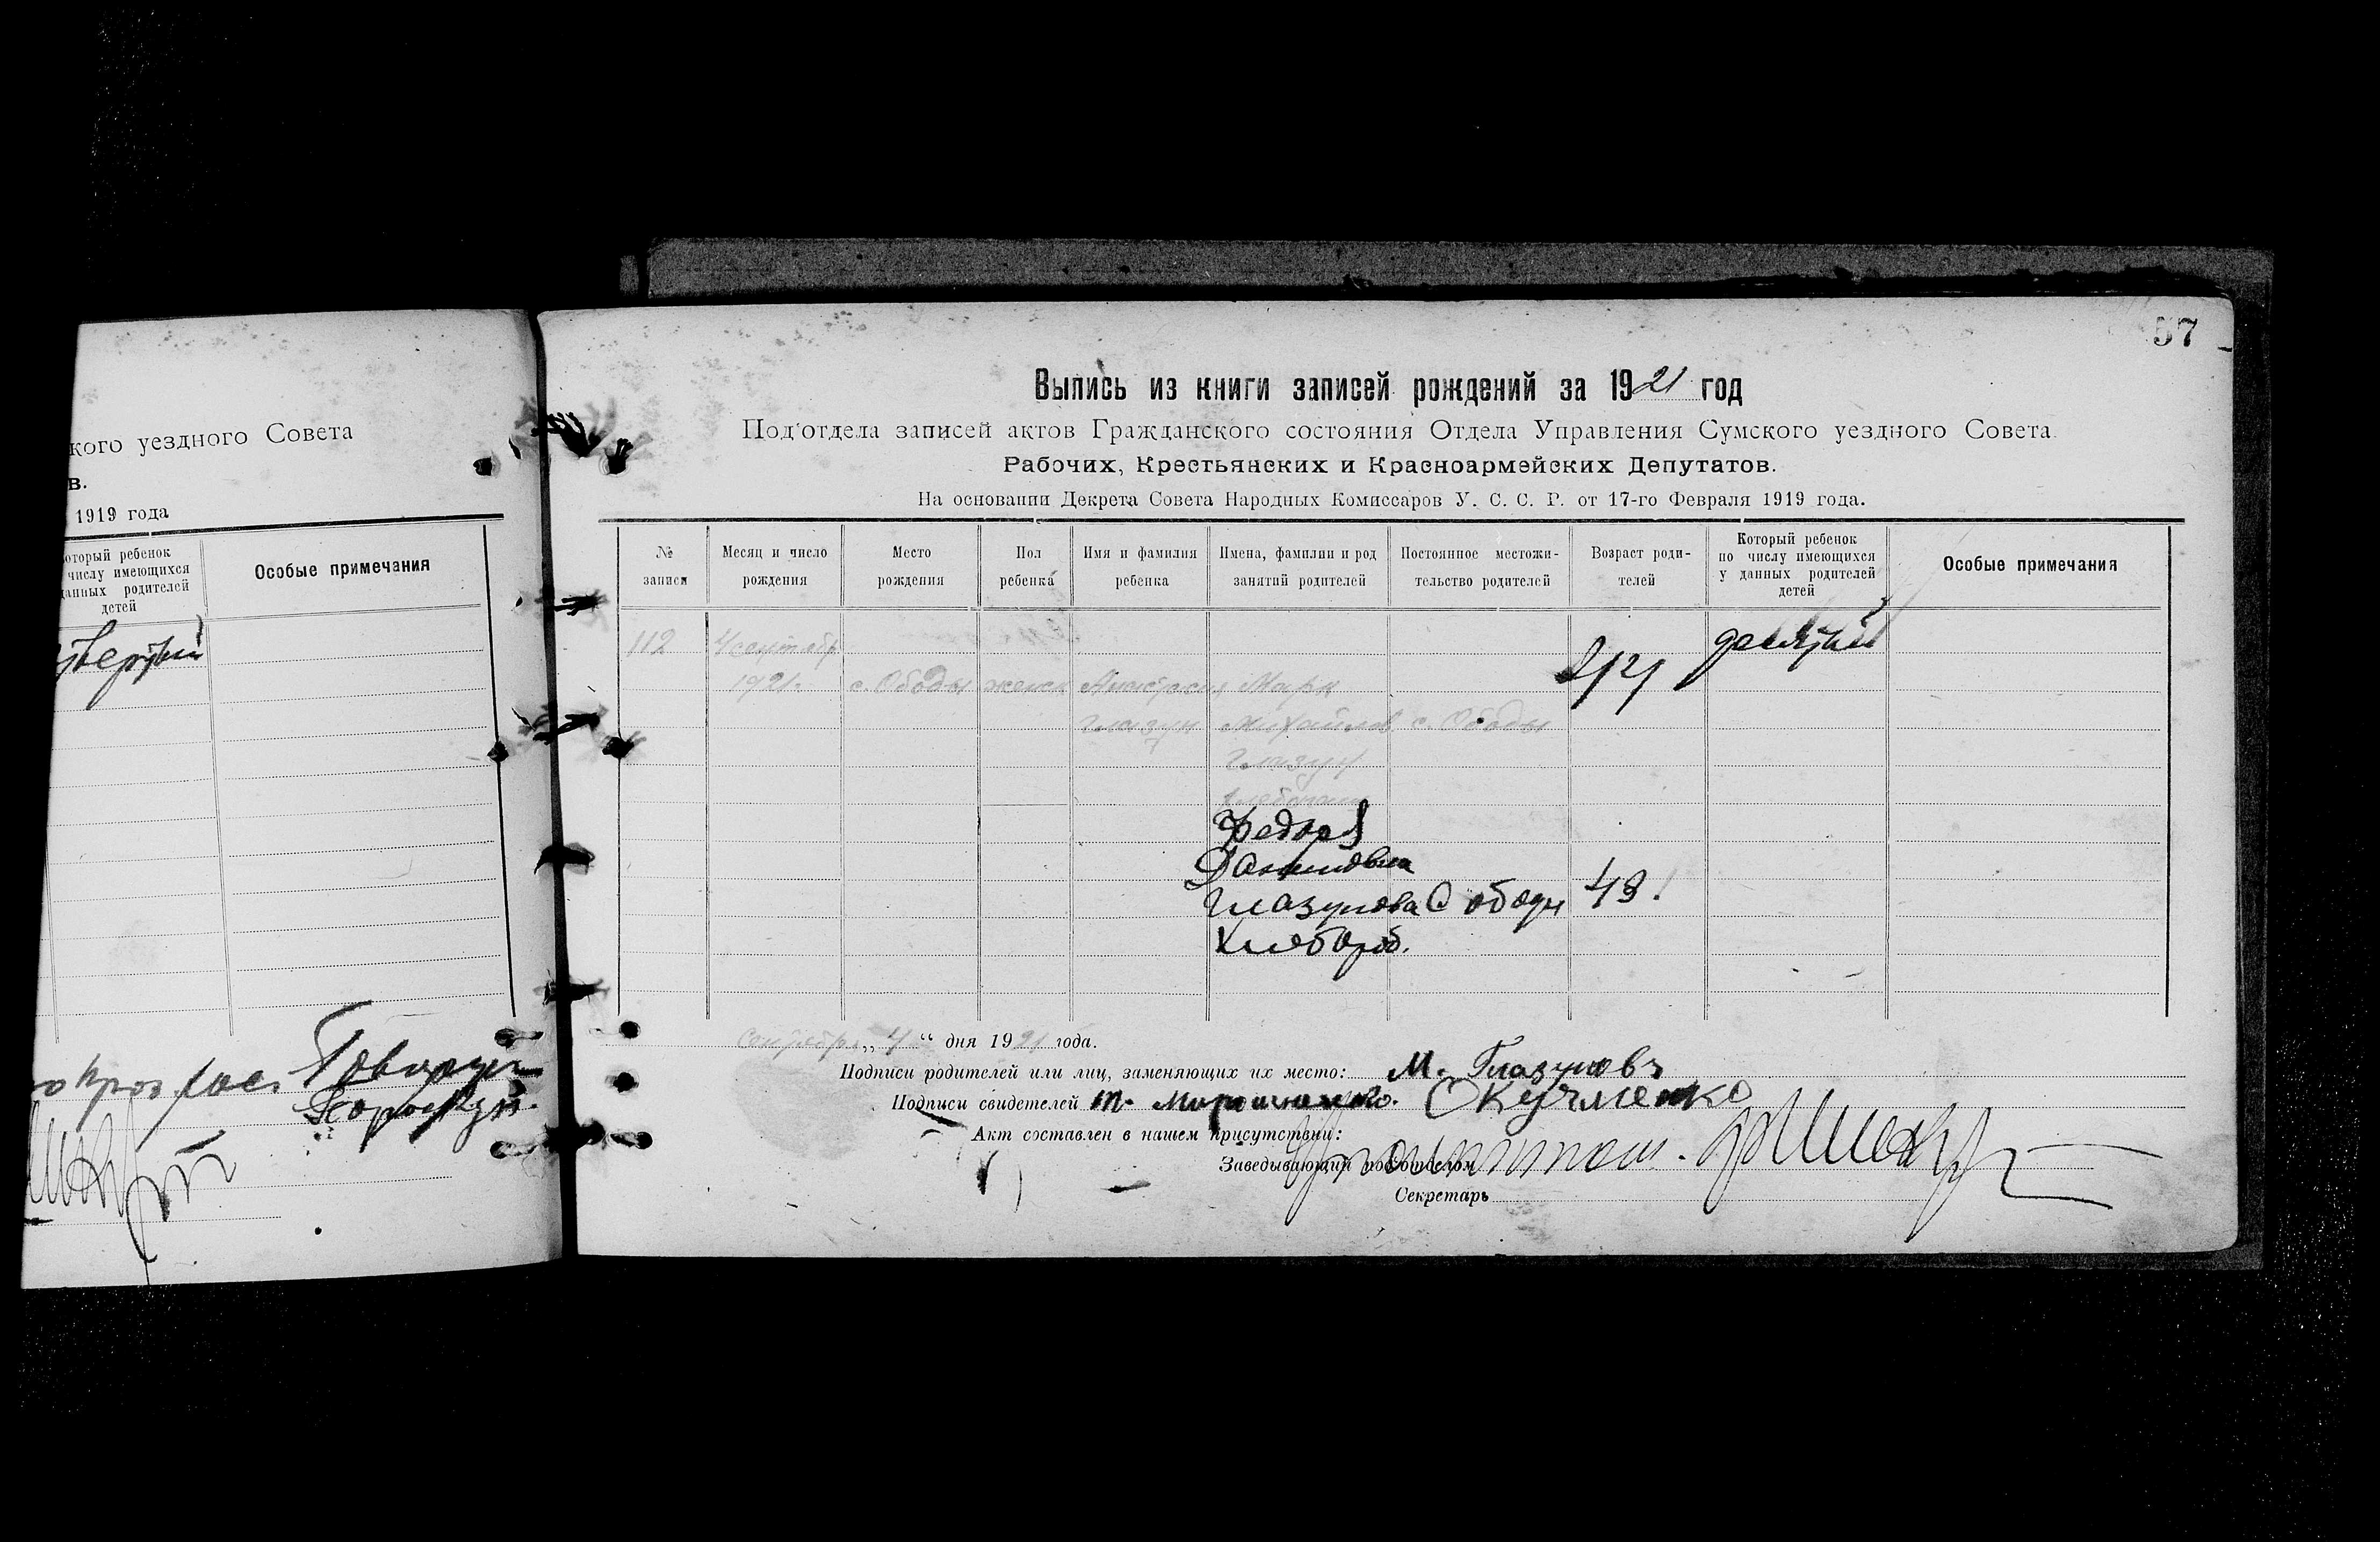 кого уездного Совета
в.
1919 года
который ребенок
числу имеющихся
данных родителей
детей
Особые примечания
57
Выпись из книги записей рождений за 1921 год
Под'отдела записей актов Гражданского состояния Отдела Управления Сумского уездного Совета
Рабочих, Крестьянских и Красноармейских Депутатов.
На основании Декрета Совета Народных Комиссаров У. С. С. Р. от 17-го Февраля 1919 года.
№ записи
Месяц и число рождения
Место рождения
Пол ребенка
Имя и фамилия ребенка
Имена, фамилии и род занятий родителей
Постоянное местожительство родителей
Возраст родителей
Который ребенок по числу имеющихся у данных родителей детей
Особые примечания
112 4 сентябр
1921. с. Ободы женск Анастасия Марк
Глазун Михайлов с. Ободы
Глазун
Федора
Даниловна
Глазунова С ободы 48.
Хлебороб.
Сентября „ 4 “ дня 1921 года.
Подписи родителей или лиц, заменяющих их место: М. Глазуновъ
Подписи свидетелей т. Мирошниченко. С Кучменко
Акт составлен в нашем присутствии:
Заведывающий подотделом
Секретарь